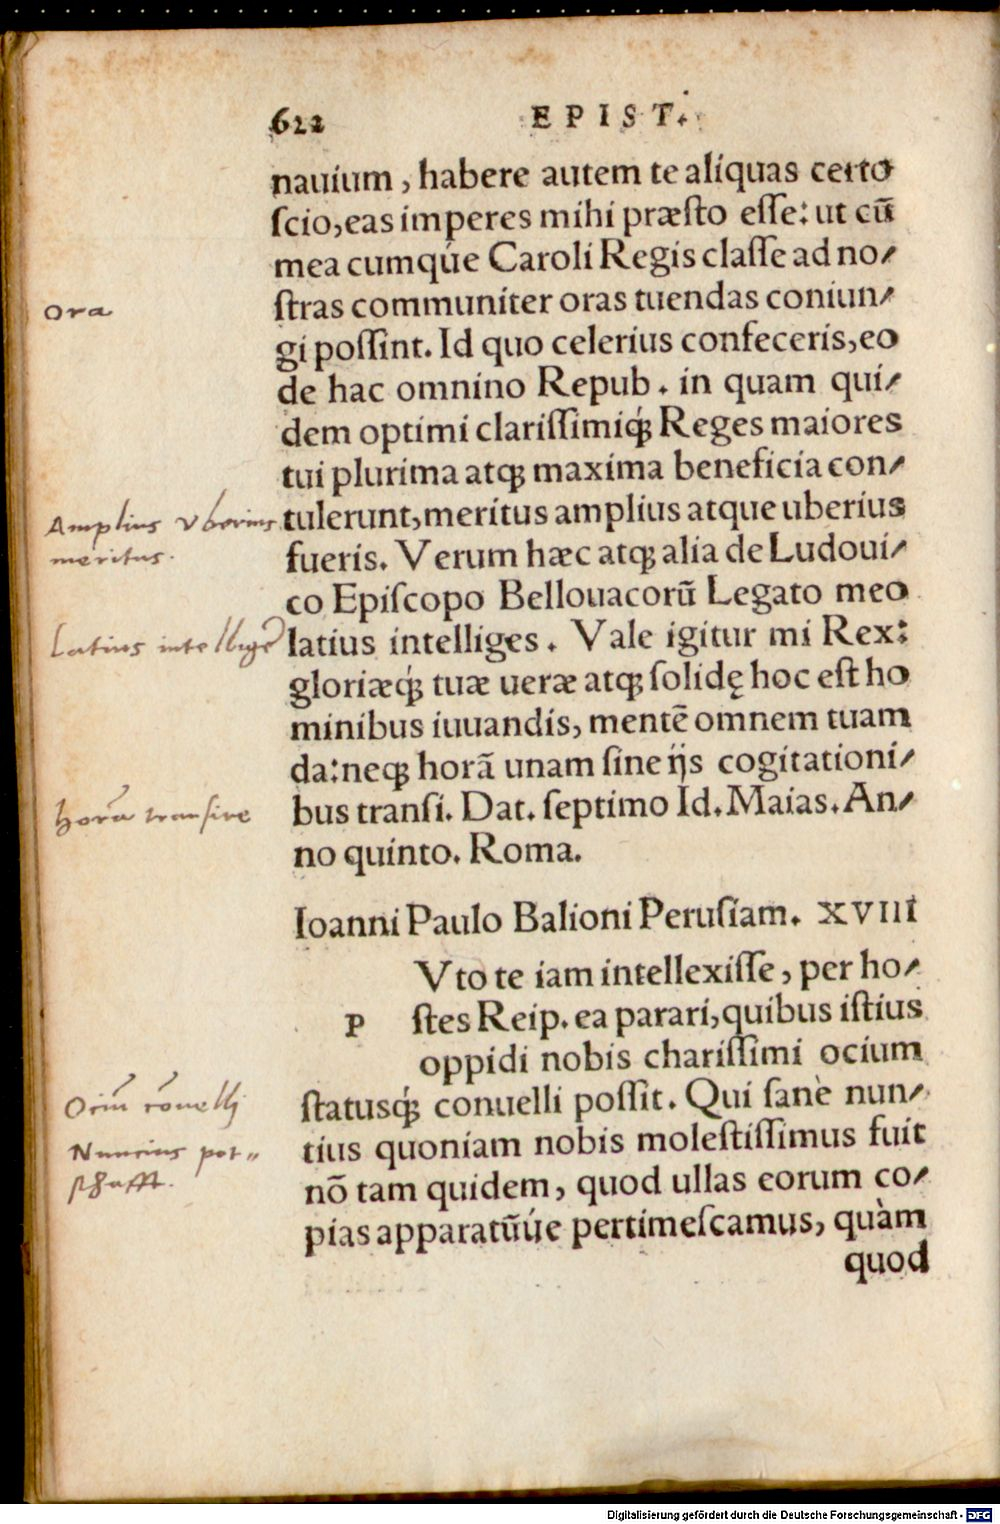 622 EPIST.
nauium, habere autem te aliquas certo
ſcio, eas imperes mihi præſto eſſe: ut cū
mea cumqúe Caroli Regis claſſe ad no⸗
Ora
ſtras communiter oras tuendas coniun⸗
gi poſſint. Id quo celerius confeceris, eo
de hac omnino Repub. in quam qui⸗
dem optimi clariſſimiq́ꝫ Reges maiores
tui plurima atqꝫ maxima beneficia con⸗
Amplius vberius
tulerunt, meritus amplius atque uberius
meritus.
fueris. Verum hæc atqꝫ alia de Ludoui⸗
co Epiſcopo Bellouacorū Legato meo
Latius intellige
latius intelliges. Vale igitur mi Rex:
gloriæq́ꝫ tuæ ueræ atqꝫ ſolidę hoc eſt ho
minibus iuuandis, mentē omnem tuam
da: neqꝫ horā unam ſine ijs cogitationi⸗
horā transire
bus tranſi. Dat. ſeptimo Id. Maias. An⸗
no quinto. Roma.
Ioanni Paulo Balioni Peruſiam. XVIII
Vto te iam intellexiſſe, per ho⸗
P ſtes Reip. ea parari, quibus iſtius
oppidi nobis chariſſimi ocium
Ociū cōuelli
ſtatusq́ꝫ conuelli poſſit. Qui ſanè nun⸗
Nuncius pot⸗
tius quoniam nobis moleſtiſſimus fuit
schafft.
nō tam quidem, quod ullas eorum co⸗
pias apparatūúe pertimeſcamus, quàm
quod
Digitalisierung gefördert durch die Deutsche Forschungsgemeinschaft - DFG